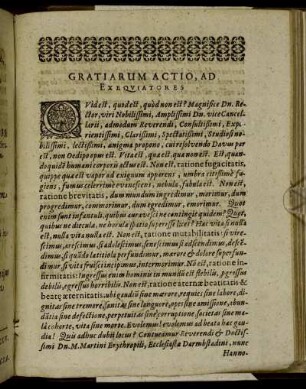 GRATIARUM ACTIO, AD
EXEQVIATORES
QVid est, quod est, quòd non est? Magnifice Dn. Re-
ctor, viri Nobilissimi, Amplissimi Dn. vice Cancel-
larii, admodum Reverendi, Consultissimi, Exp-
erientissimi, Clarissimi, Spectatissimi, Studiosi no-
bilissimi, lectissimi, ænigma propono, cui resolvendo Davus par
est, non Oedipo opus est. Vita est, quæ est, quæ non est. Est quan-
do quis est humani corporis actus: est. Non est, ratione fugacitatis,
quippe quæ est vapor ad exiguum apparens, umbra citissimè fu-
giens, fumus celerrimè evanescens, nebula, fabula est. Non est,
ratione brevitatis, dum mundum ingredimur, morimur, dum
progredimur, commorimur, dum egredimur, emorimur. Quot
enim sunt infantuli, quibus
quibus ne diecula, ne horula
est, nulla vita nulla est. Non est, ratione mutabilitatis: si vive-
scimus,
scimus, si quid lætitiola perfundimur, mærore & dolore super fun-
dimur, si vita fruiscimur, intermorimur. Non est, ratione in-
firmitatis: Ingressus enim hominis in mundum est flebilis, progressus
debilis, egressus horribilis. Non est, ratione æternæ beatitatis &
beatæ æternitatis:
gnitas sine tremore, sanitas sine languore,
dantia sine defectione, perpetuitas sine corruptione, societas sine ma-
la cohorte, vita sine morte. Evolemus! evolemus ad beata hæc gau-
dia! Quis adhuc dubii locus? Contueamur Reverendi & Doctis-
simi Dn. M. Martini Erythropili, Ecclesiastæ Darmbstadini, nunc
Hanno-